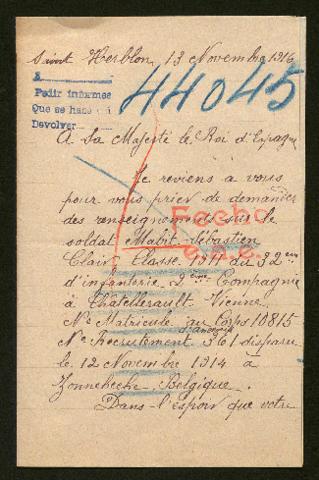 Saint Herblon, 13 Novembre 1916
Pedir informes
Que se hace
Devolver
44045
A Sa Majesté le Roi d'Espagne
Je reviens a vous
pour vous prier de demander
des renseignements sur le
soldat Mabit Sébastien
Clair, Classe 1914 au 32em
d'infanterie 2eme Compagnie
à Châtellerault, Vienne.
No Matricule au Corps 10815
d'ancenis
No Recrutement 361 disparu
le 12 Novembre 1914 à
Zonnebecke, Belgique.
Dans l'espoir que votre
Fecho